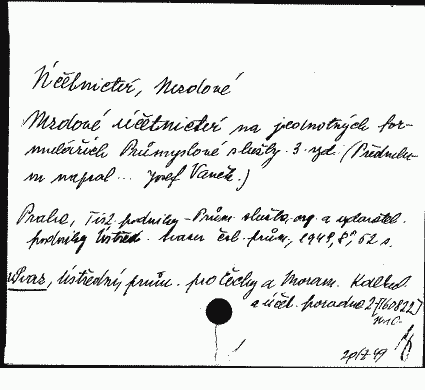 Účetnictví, Mzdové
Mzdové účetnictví na jednotných for-
mulářích Průmyslové služby. 3. vyd. (Předmlu-
vu napsal... Josef Vaněk.)
Praha, Tisk. podniky - Prům. služba, org. a vydavatel.
podniky Ústřed. svazu čsl. prům., 1949, 8°, 52 s.
Svaz, Ústřední, prům. pro Čechy a Moravu. Kalkul.
a účet. poradna